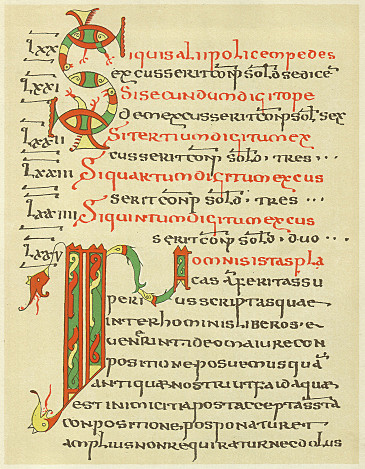 LXX Siquis alii police pedes
excusserit conp sold sedece
LXXI Si secundum digito pe
dem excusserit conp sol sex
LXXII Si tertium digitum ex
cusserit conp sold · tres · · ·
LXXIII Si quartum digitum excus
serit conp sold · tres · · ·
LXXIIII Si quintum digitum excus
serit conp sold · duo · · ·
LXXV In omnis istas pla
cas a feritas su
perius scriptas quae
inter hominis liberos · e
venerint ideo maiore con
positione posuemus qua
antiquae nostri ut faida quae
est inimicitia post accepta ssta
conpositione posponatur et
amplius non requiratur nec dolus